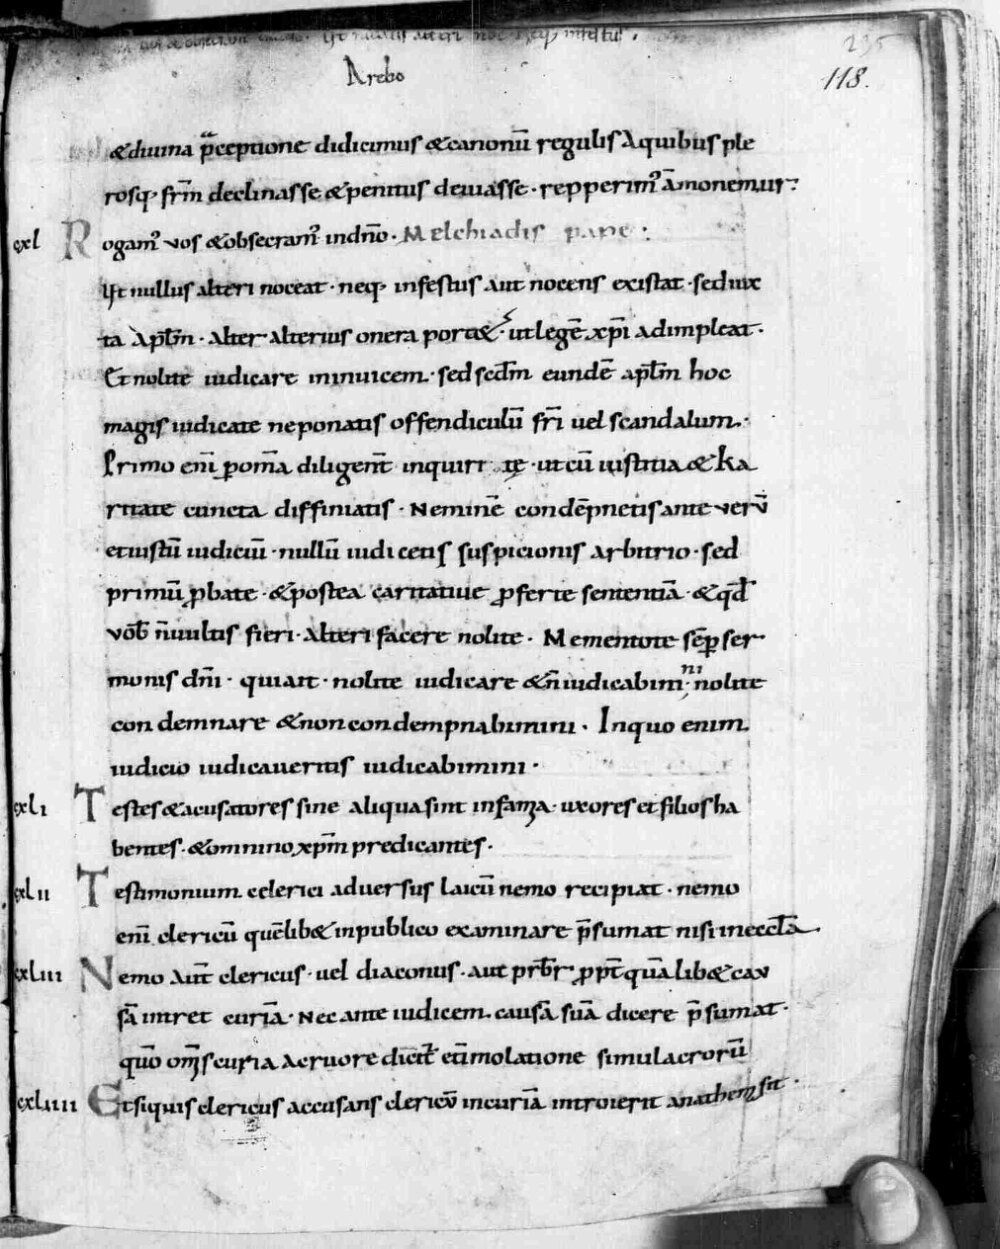 Ut nullus alteri noc neq; infestus.
Arebo
235
118.
&diuina p̄ceptione didicimus &canonū regulis Aquibus ple
rosq; fr̄m declinasse &penitus deuiasse · repperim᾽ āmonemur:
cxl Rogam᾽ vos &obsecram᾽ indn̄o · Melchiadis pape :
Ut nullus alteri noceat · neq; infestus aut nocens existat · sed iux
ta Apl̄m · Alter alterius onera port& · ut legē xp̄i adimpleat ·
Et nolite iudicare inuicem · sed scd̄m eundē apl̄m hoc
magis iudicate neponatis offendiculū fr̄i uel scandalum ·
Primo enī ꝑom̄a diligent̄ inquirite · ut cū iustitia & ka
ritate cuncta diffiniatis · Neminē condēpnetis ante verū
etiustū iudiciū · nullū iudicetis suspicionis arbitrio · sed
primū ꝓbate · &postea caritatiue ꝓferte sententiā · &qd̄
vob̄ n̄uultis fieri · Alteri facere nolite · Mementote sēꝑ ser
monis dn̄i · quiait · nolite iudicare &n̄iudicabimini · nolite
con demnare &noncondempnabimini · Inquo enim
iudicio iudicaveritis iudicabimini ·
cxli Testes &acusatores sine aliqua sint infamia · uxores et filios ha
bentes · &omnino xp̄m predicantes ·
cxlii Testimonium clerici aduersus laicū nemo recipiat · nemo
enī clericū quēlib& inpublico examinare p̄sumat nisi ineccl̄a ·
cxliii Nemo aut̄ clericus · uel diaconus · aut prb̄r ꝓpt̄ quālib& cau
sā intret curiā · Nec ante iudicem causā suā dicere p̄sumat ·
quo om̄s curia acruore dicit̄ et̄imolatione simulacrorū
cxliiii Etsiquis clericus accusans clericū incuriā introierit anathema sit ·